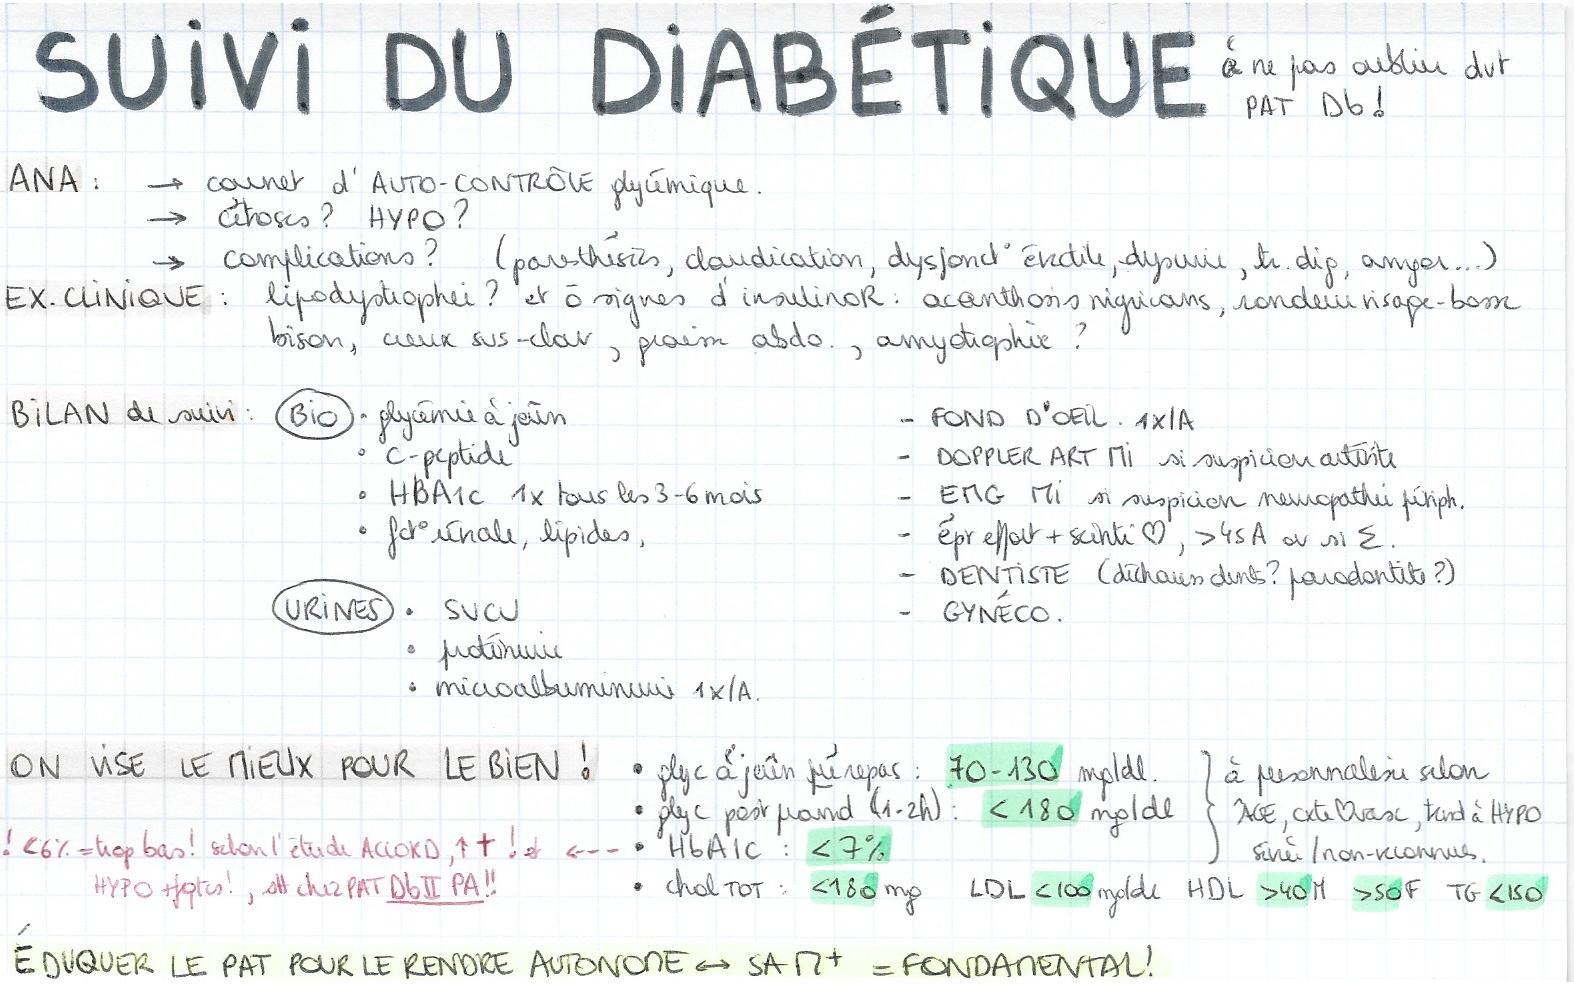 SUIVI DU DIABÉTIQUE à ne pas oublier dvt
PAT Db!
ANA : → carnet d'AUTO-CONTRÔLE glycémique.
→ cétoses? HYPO?
→ complications? (paresthésies, claudication, dysfonct° érectile, dysurie, tr. dig, angor...)
EX. CLINIQUE : lipodystrophie? et ō signes d'insulinoR : acanthosis nigricans, rondeur visage-bosse
bison, creux sus-clav, graisse abdo., amyotrophie?
BILAN de suivi :
BIO
• glycémie à jeûn
• C-peptide
• HBA1c 1x tous les 3-6 mois
• fct° rénale, lipides,
URINES
• SUCU
• protéinurie
• microalbuminurie 1x/A.
- FOND D'OEIL. 1x/A
- DOPPLER ART MI si suspicion artérite
- EMG MI si suspicion neuropathie périph.
- épr effort + scinti ♡, >45A ou si Σ.
- DENTISTE (déchauss dents? parodontite?)
- GYNÉCO.
ON VISE LE MIEUX POUR LE BIEN!
• glyc à jeûn prérepas : 70-130 mg/dl.
• glyc post prand (1-2h) : <180 mg/dl
• HbA1c : <7%
• chol TOT : <180 mg LDL <100 mg/dl HDL >40M >50F TG <150
à personnaliser selon
AGE, cxte ♡vasc, tend à HYPO
sévère/non-reconnues.
! <6% = trop bas! selon l'étude ACCORD, ↑ † ! ←---
HYPO + fqtes!, stt chez PAT DbII PA!!
ÉDUQUER LE PAT POUR LE RENDRE AUTONOME ↔ SA M+ = FONDAMENTAL!